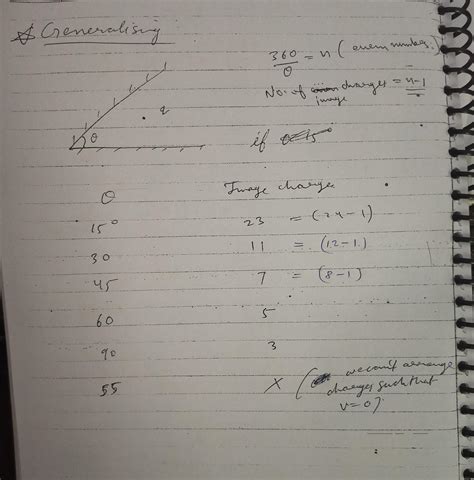 Generalising
360/θ = n (even number)
No. of charges = n-1
image
θ
q
if θ=15°
θ Image charge
15° 23 = (24-1)
30 11 = (12-1)
45 7 = (8-1)
60 5
90 3
55 X ( we can't arrange
charges such that
V=0)